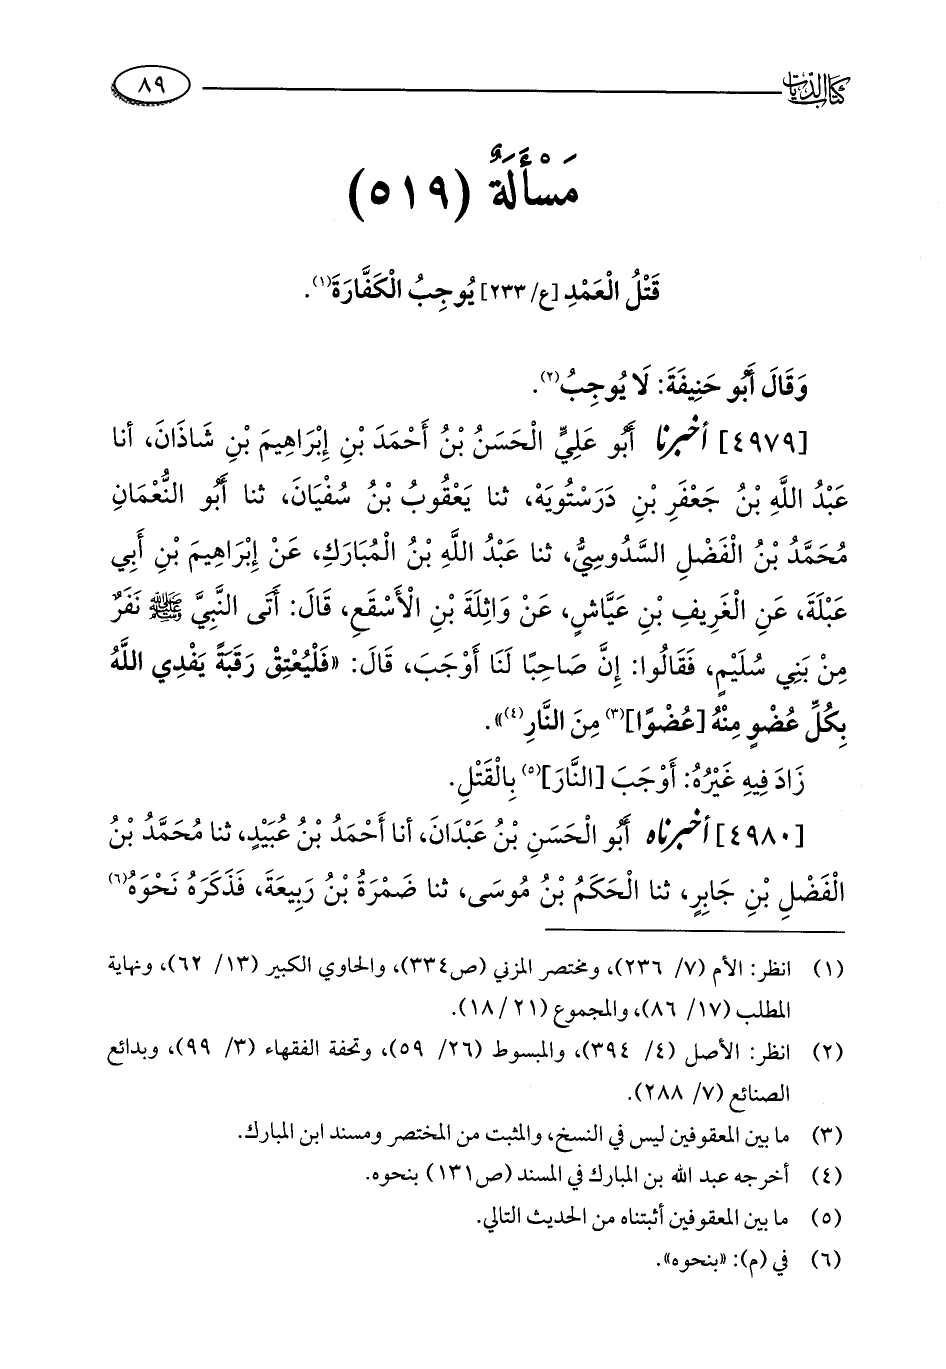 كتاب الديات
٨٩
مَسْأَلَةٌ (٥١٩)
قَتْلُ الْعَمْدِ [ع/ ٢٣٣] يُوجِبُ الْكَفَّارَةَ(١).
وَقَالَ أَبُو حَنِيفَةَ: لَا يُوجِبُ(٢).
[٤٩٧٩] أخبرنا أَبُو عَلِيٍّ الْحَسَنُ بْنُ أَحْمَدَ بْنِ إِبْرَاهِيمَ بْنِ شَاذَانَ، أنا
عَبْدُ اللَّهِ بْنُ جَعْفَرِ بْنِ دَرَسْتُويَهْ، ثنا يَعْقُوبُ بْنُ سُفْيَانَ، ثنا أَبُو النُّعْمَانِ
مُحَمَّدُ بْنُ الْفَضْلِ السَّدُوسِيُّ، ثنا عَبْدُ اللَّهِ بْنُ الْمُبَارَكِ، عَنْ إِبْرَاهِيمَ بْنِ أَبِي
عَبْلَةَ، عَنِ الْغَرِيفِ بْنِ عَيَّاشٍ، عَنْ وَاثِلَةَ بْنِ الْأَسْقَعِ، قَالَ: أَتَى النَّبِيَّ ﷺ نَفَرٌ
مِنْ بَنِي سُلَيْمٍ، فَقَالُوا: إِنَّ صَاحِبًا لَنَا أَوْجَبَ، قَالَ: «فَلْيُعْتِقْ رَقَبَةً يَفْدِي اللَّهُ
بِكُلِّ عُضْوٍ مِنْهُ [عُضْوًا](٣) مِنَ النَّارِ(٤)».
زَادَ فِيهِ غَيْرُهُ: أَوْجَبَ [النَّارَ](٥) بِالْقَتْلِ.
[٤٩٨٠] أخبرناه أَبُو الْحَسَنِ بْنُ عَبْدَانَ، أنا أَحْمَدُ بْنُ عُبَيْدٍ، ثنا مُحَمَّدُ بْنُ
الْفَضْلِ بْنِ جَابِرٍ، ثنا الْحَكَمُ بْنُ مُوسَى، ثنا ضَمْرَةُ بْنُ رَبِيعَةَ، فَذَكَرَهُ نَحْوَهُ(٦)
(١) انظر: الأم (٧/ ٢٣٦)، ومختصر المزني (ص٣٣٤)، والحاوي الكبير (١٣/ ٦٢)، ونهاية
المطلب (١٧/ ٨٦)، والمجموع (٢١/ ١٨).
(٢) انظر: الأصل (٤/ ٣٩٤)، والمبسوط (٢٦/ ٥٩)، وتحفة الفقهاء (٣/ ٩٩)، وبدائع
الصنائع (٧/ ٢٨٨).
(٣) ما بين المعقوفين ليس في النسخ، والمثبت من المختصر ومسند ابن المبارك.
(٤) أخرجه عبد الله بن المبارك في المسند (ص١٣١) بنحوه.
(٥) ما بين المعقوفين أثبتناه من الحديث التالي.
(٦) في (م): «بنحوه».